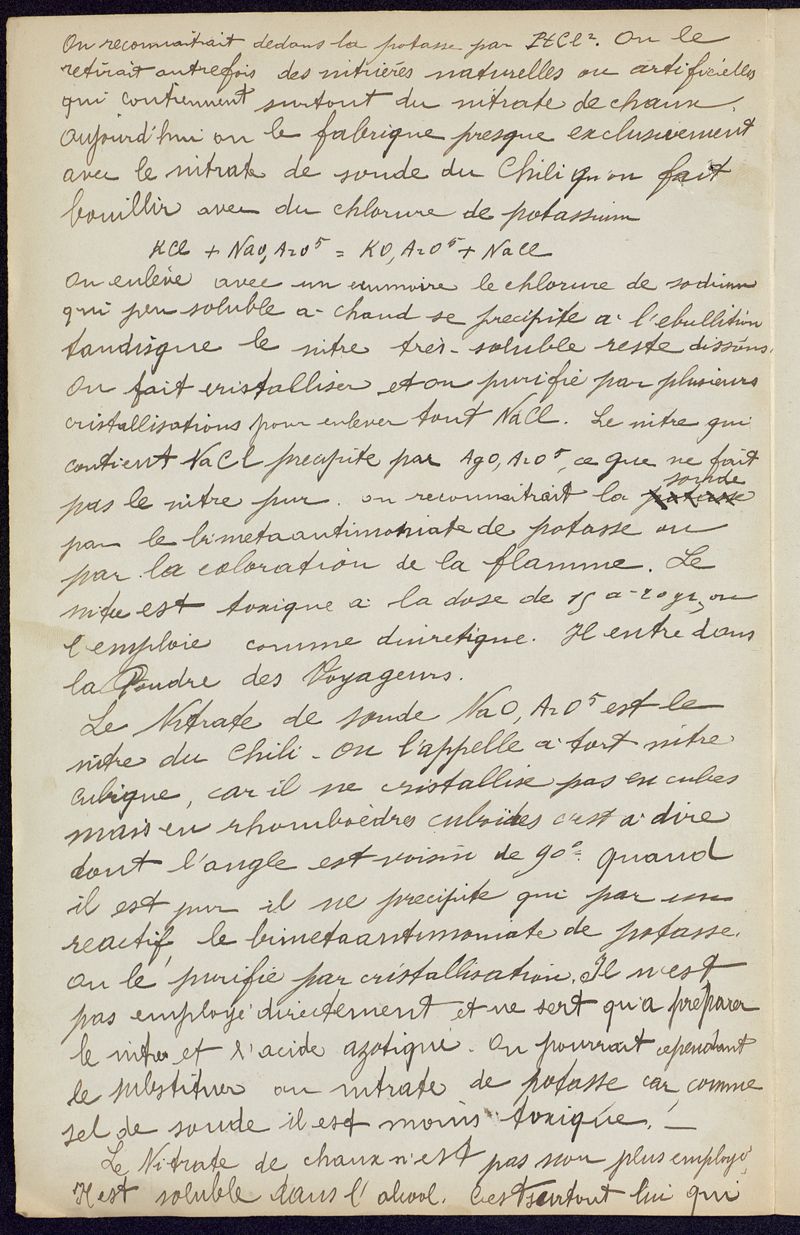 On reconnaitrait dedans la potasse par PtCl². On le
retirait autrefois des nitrières naturelles ou artificielles
qui contiennent surtout du nitrate de chaux.
Aujourd'hui on le fabrique presque exclusivement
avec le nitrate de soude du Chili qu'on fait
bouillir avec du chlorure de potassium
KCl + NaO, AzO⁵ = KO, AzO⁵ + NaCl
On enlève avec un ecumoire le chlorure de sodium
qui peu soluble a chaud se precipite a l'ebullition
tandisque le nitre très-soluble reste dissous.
On fait cristalliser et on purifie par plusieurs
cristallisations pour enlever tout NaCl. Le nitre qui
contient NaCl precipite par AgO, AzO⁵, ce que ne fait
pas le nitre pur. on reconnaitrait la soude
par le bimetaantimoniate de potasse ou
par la coloration de la flamme. Le
nitre est toxique a la dose de 15 a 20 gr, on
l'emploie comme diuretique. Il entre dans
la Poudre des Voyageurs.
Le Nitrate de soude NaO, AzO⁵ est le
nitre du Chili - On l'appelle a tort nitre
cubique, car il ne cristallise pas en cubes
mais en rhomboèdres cuboïdes c'est a dire
dont l'angle est voisin de 90°. quand
il est pur il ne precipite qui par un
reactif, le bimetaantimoniate de potasse.
On le purifie par cristallisation. Il n'est
pas employé directement et ne sert qu'a préparer
le nitre et l'acide azotique. On pourrait cependant
le substituer au nitrate de potasse car comme
sel de soude il est moins toxique. -
Le Nitrate de chaux n'est pas non plus employé.
Il est soluble dans l'alcool. C'est surtout lui qui